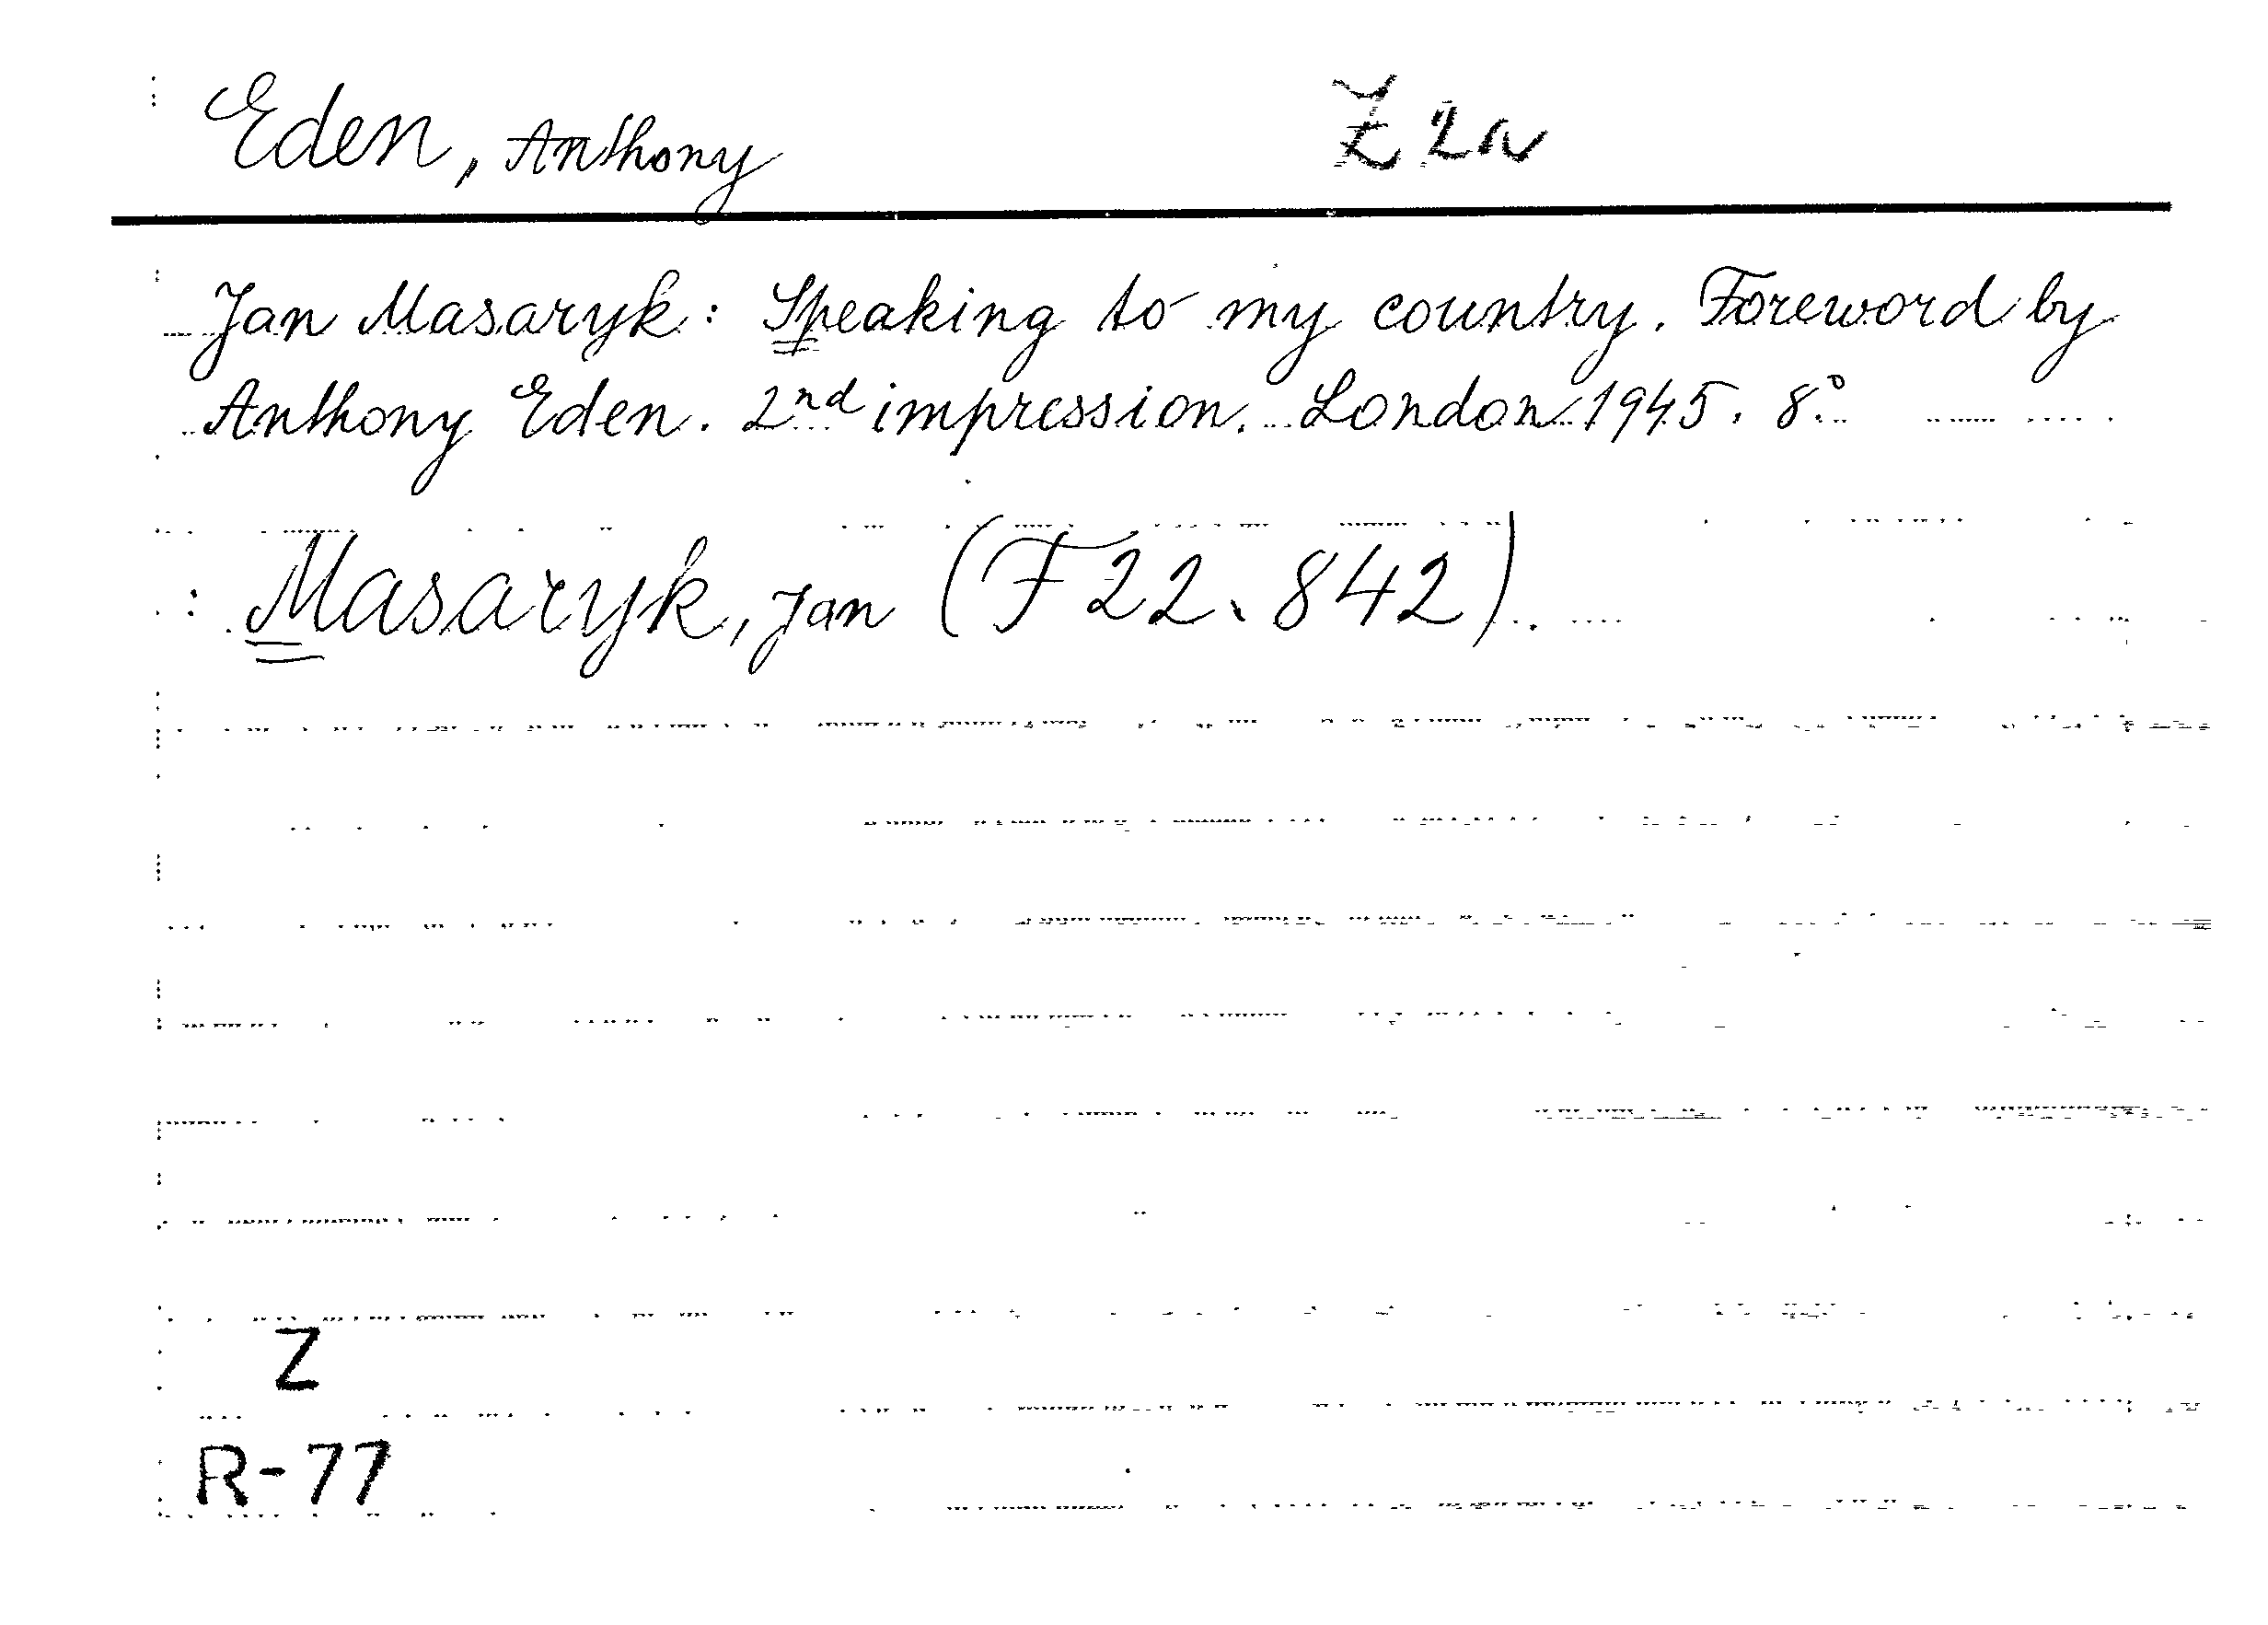 Eden, Anthony Z 2a
Jan Masaryk: Speaking to my country. Foreword by
Anthony Eden. 2nd impression. London 1945. 8°
: Masaryk, Jan (F 22.842).
Z
R-77